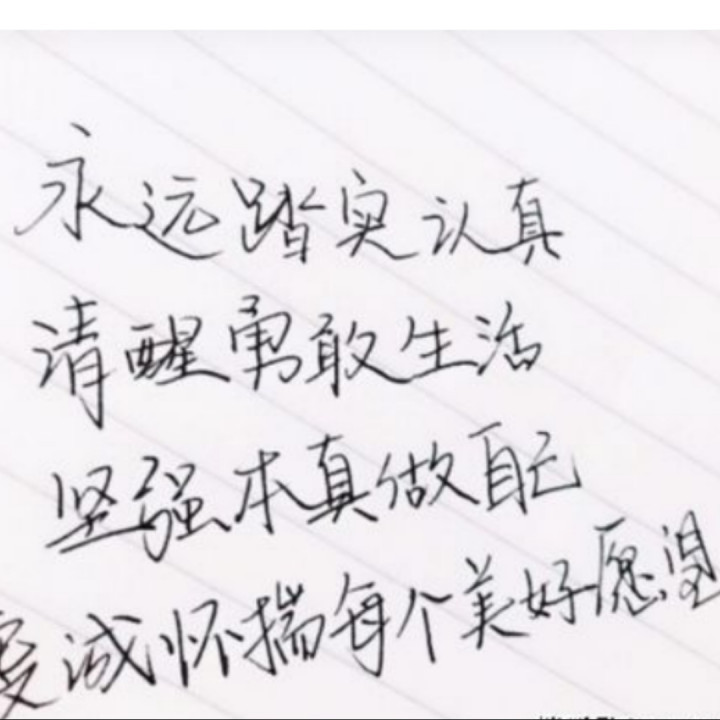 永远踏实认真
清醒勇敢生活
坚强本真做自己
虔诚怀揣每个美好愿望